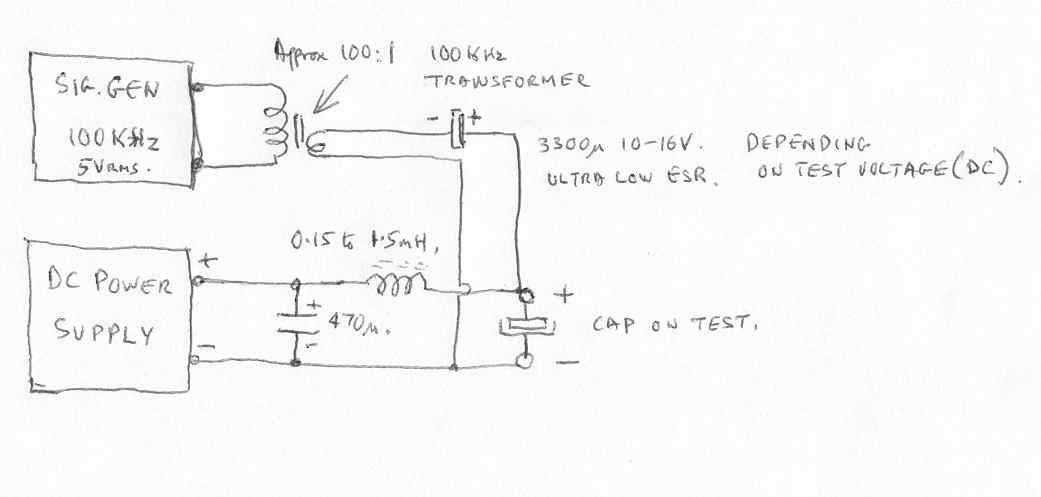 Approx 100:1 100KHz
TRANSFORMER
SIG. GEN
100KHz
5VRMS.
- +
3300µ 10-16V. DEPENDING
ULTRA LOW ESR. ON TEST VOLTAGE (DC).
0.15 to 1.5mH,
DC POWER
SUPPLY
+
-
+
470µ.
-
+
CAP ON TEST.
-